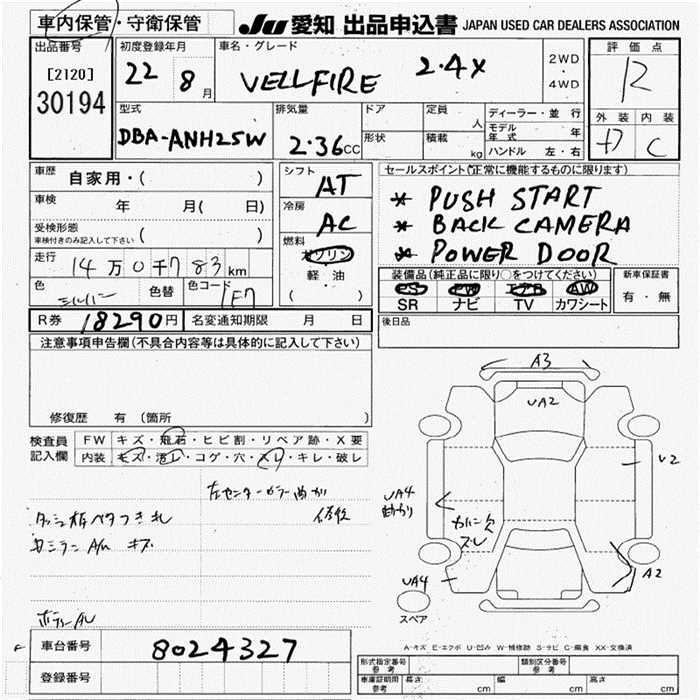 車内保管・守衛保管
JU 愛知 出品申込書 JAPAN USED CAR DEALERS ASSOCIATION
出品番号
[2120]
30194
初度登録年月
22 8月
車名・グレード
VELLFIRE 2.4X
2WD
・
4WD
評価点
R
外装 内装
C
型式
DBA-ANH25W
排気量
2.36cc
ドア
形状
定員 人
積載 kg
ディーラー・並行
モデル年式 年
ハンドル 左・右
車歴 自家用・( )
車検 年 月( 日)
受検形態
車検付きのみ記入して下さい ( )
走行 14万0千783km
色 シルバー 色替 色コード 1F7
シフト AT
冷房 AC
燃料
ガソリン
軽油
( )
セールスポイント(正常に機能するものに限ります)
* PUSH START
* BACK CAMERA
* POWER DOOR
装備品(純正品に限り○をつけてください)
PS PW エアB AW
SR ナビ TV カワシート
新車保証書
有・無
R券 18290円 名変通知期限 月 日
後日品
注意事項申告欄(不具合内容等は具体的に記入して下さい)
修復歴 有(箇所
検査員記入欄
FW キズ・飛石・ヒビ割・リペア跡・X要
内装 キズ・汚レ・コゲ・穴・スレ・キレ・破レ
左センターピラー曲り
修複
ダッシュ板ベタつき
キズ
A3
UA2
U2
UA4
曲り
スレ
UA4
A2
スペア
A・キズ E・エクボ U・凹み W・補修跡 S・サビ C・腐食 XX・交換済
車台番号 8024327
登録番号
形式指定番号 参考
類別区分番号 参考
車庫証明用 参考 長さ cm 幅 cm 高さ cm